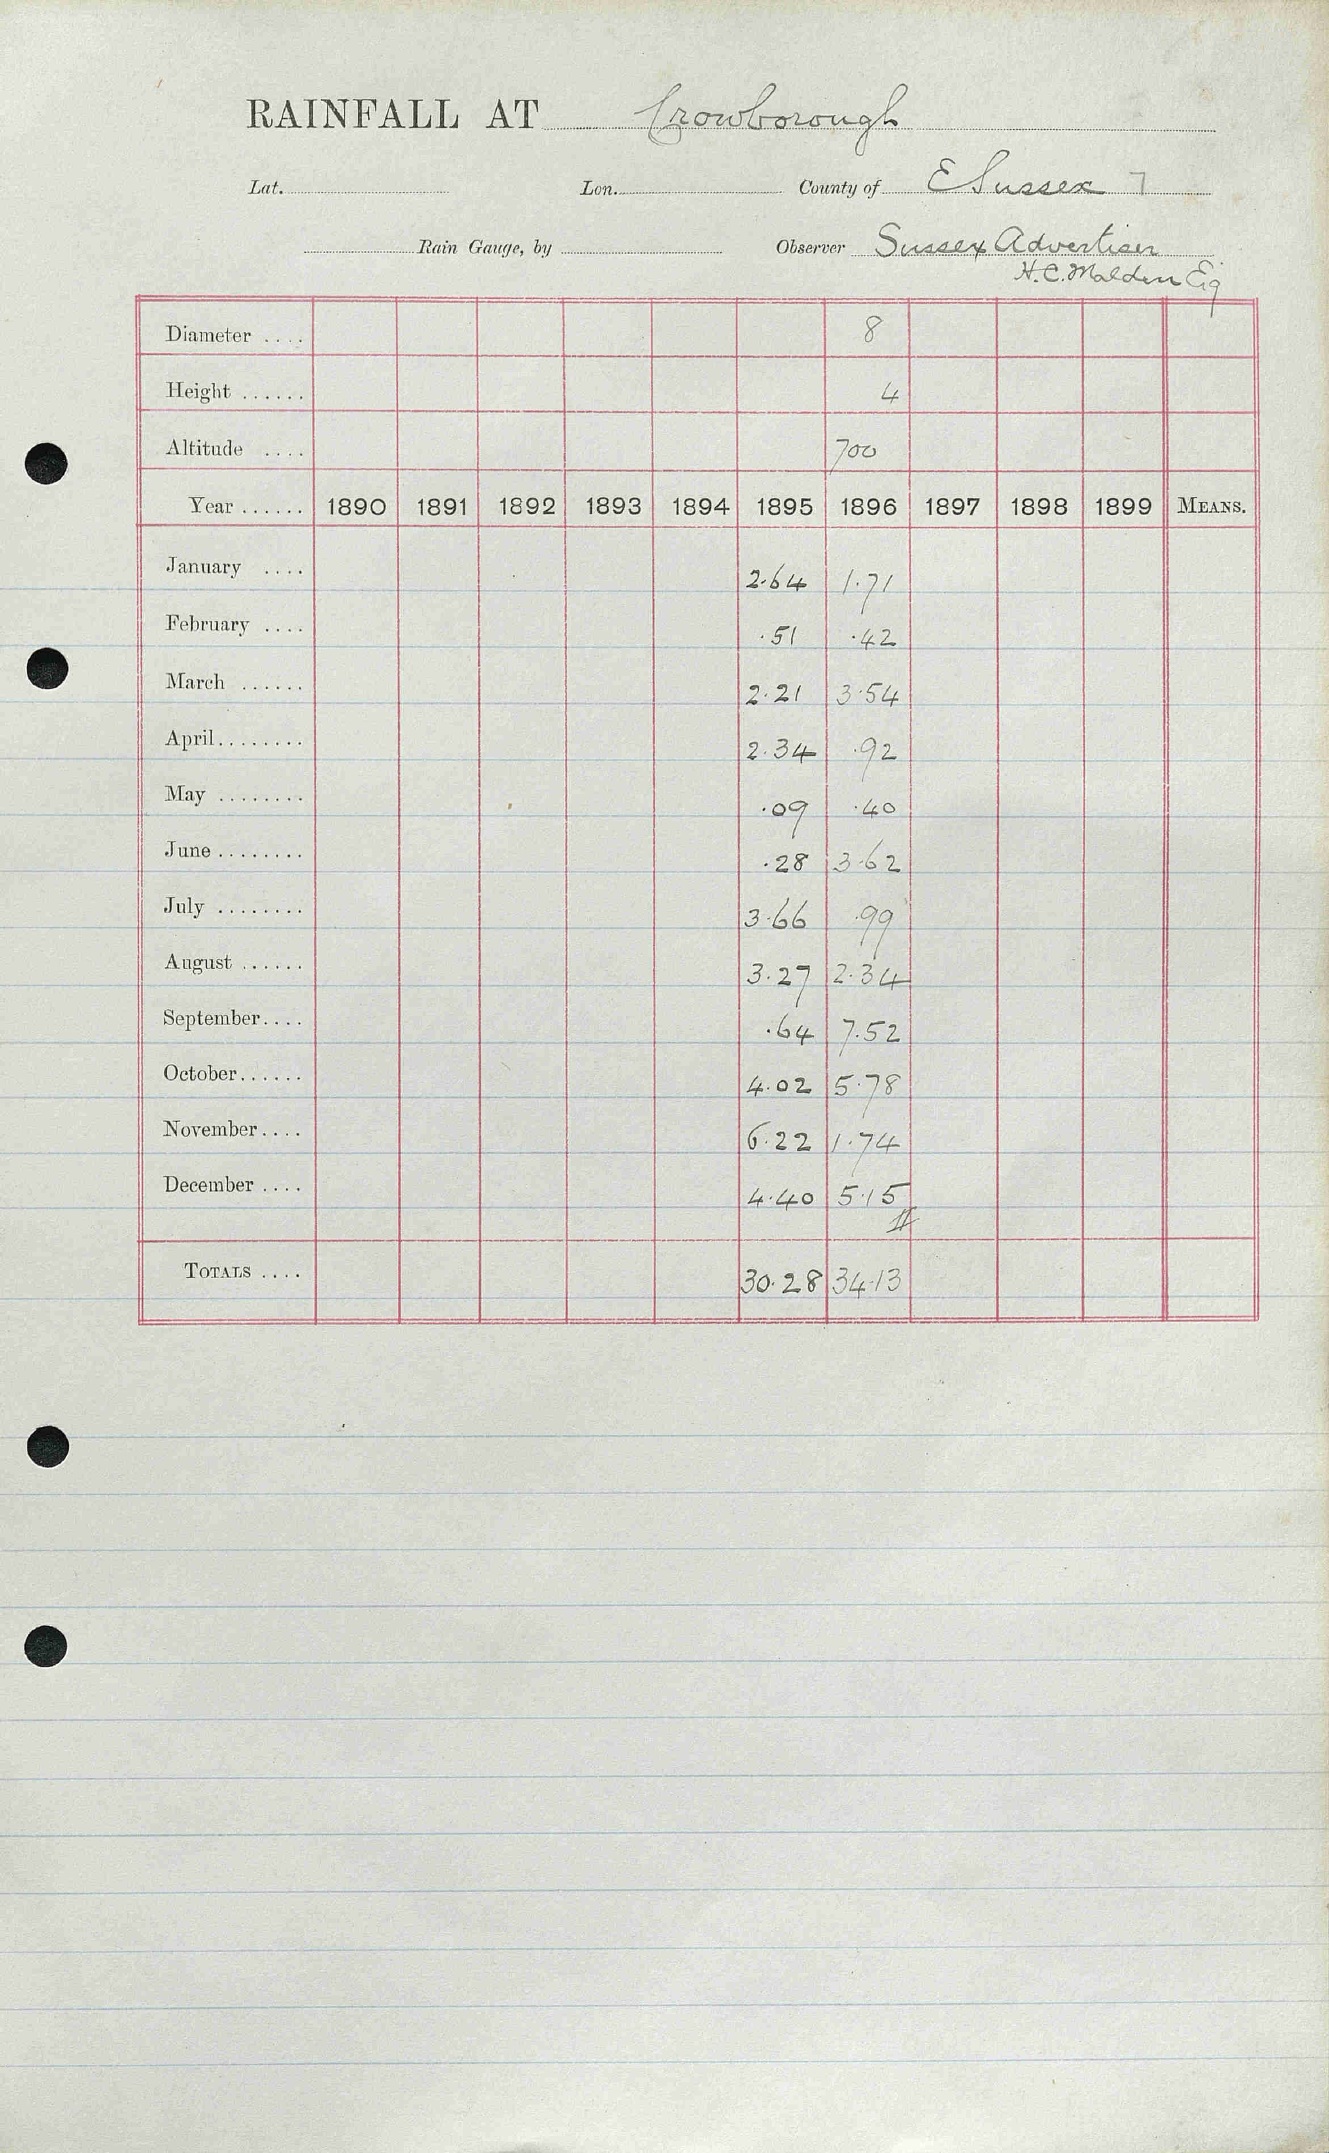 RAINFALL AT Crowborough
Lat. Lon. County of E Sussex 7
Rain Gauge, by Observer Sussex Advertiser
H. C. Malden Esq
Diameter .... 8
Height ...... 4
Altitude .... 700
Year ...... 1890 1891 1892 1893 1894 1895 1896 1897 1898 1899 MEANS.
January .... 2.64 1.71
February .... .51 .42
March ...... 2.21 3.54
April........ 2.34 .92
May ........ .09 .40
June ........ .28 3.62
July ........ 3.66 .99
August ...... 3.27 2.34
September.... .64 7.52
October...... 4.02 5.78
November.... 6.22 1.74
December .... 4.40 5.15
TOTALS .... 30.28 34.13